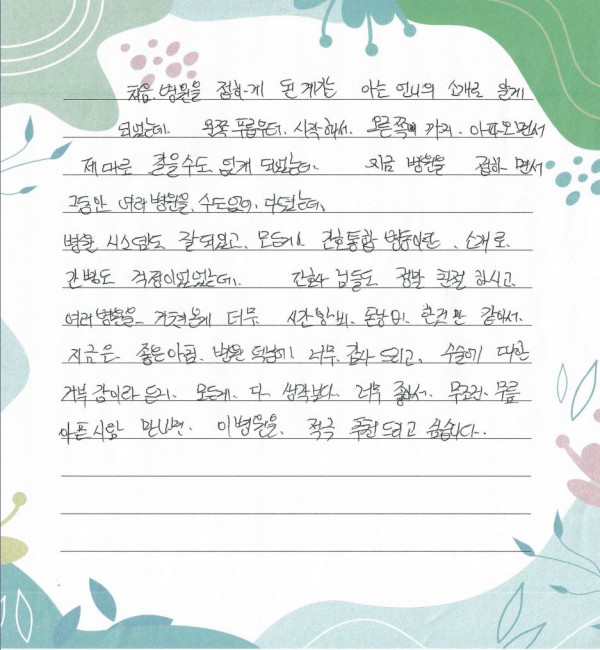 처음, 병원을 접하게 된 계기는 아는 언니의 소개로 알게
되었는데. 왼쪽 무릎부터. 시작해서. 오른쪽에 까지. 아파오면서
제대로 걸을수도 없게 되었는데. 지금 병원을 접하면서
그동안 여러병원을, 수도없이, 다녔는데,
병원, 시스템도 잘되있고, 모든게 간호통합 병동이란, 소개로.
간병도 걱정이없었는데. 간호사님들도 정말 친절하시고,
여러병원을 거쳐온게 너무. 시간낭비, 돈낭비, 한것만 같아서.
지금은. 좋은아침. 병원 덕분에 너무, 감사드리고, 수술에 대한
거부감이라든지. 모든게. 다. 생각보다. 너무 좋아서. 무조건. 무릎
아픈사람 만나면. 이병원을. 적극 추천드리고 싶습니다.